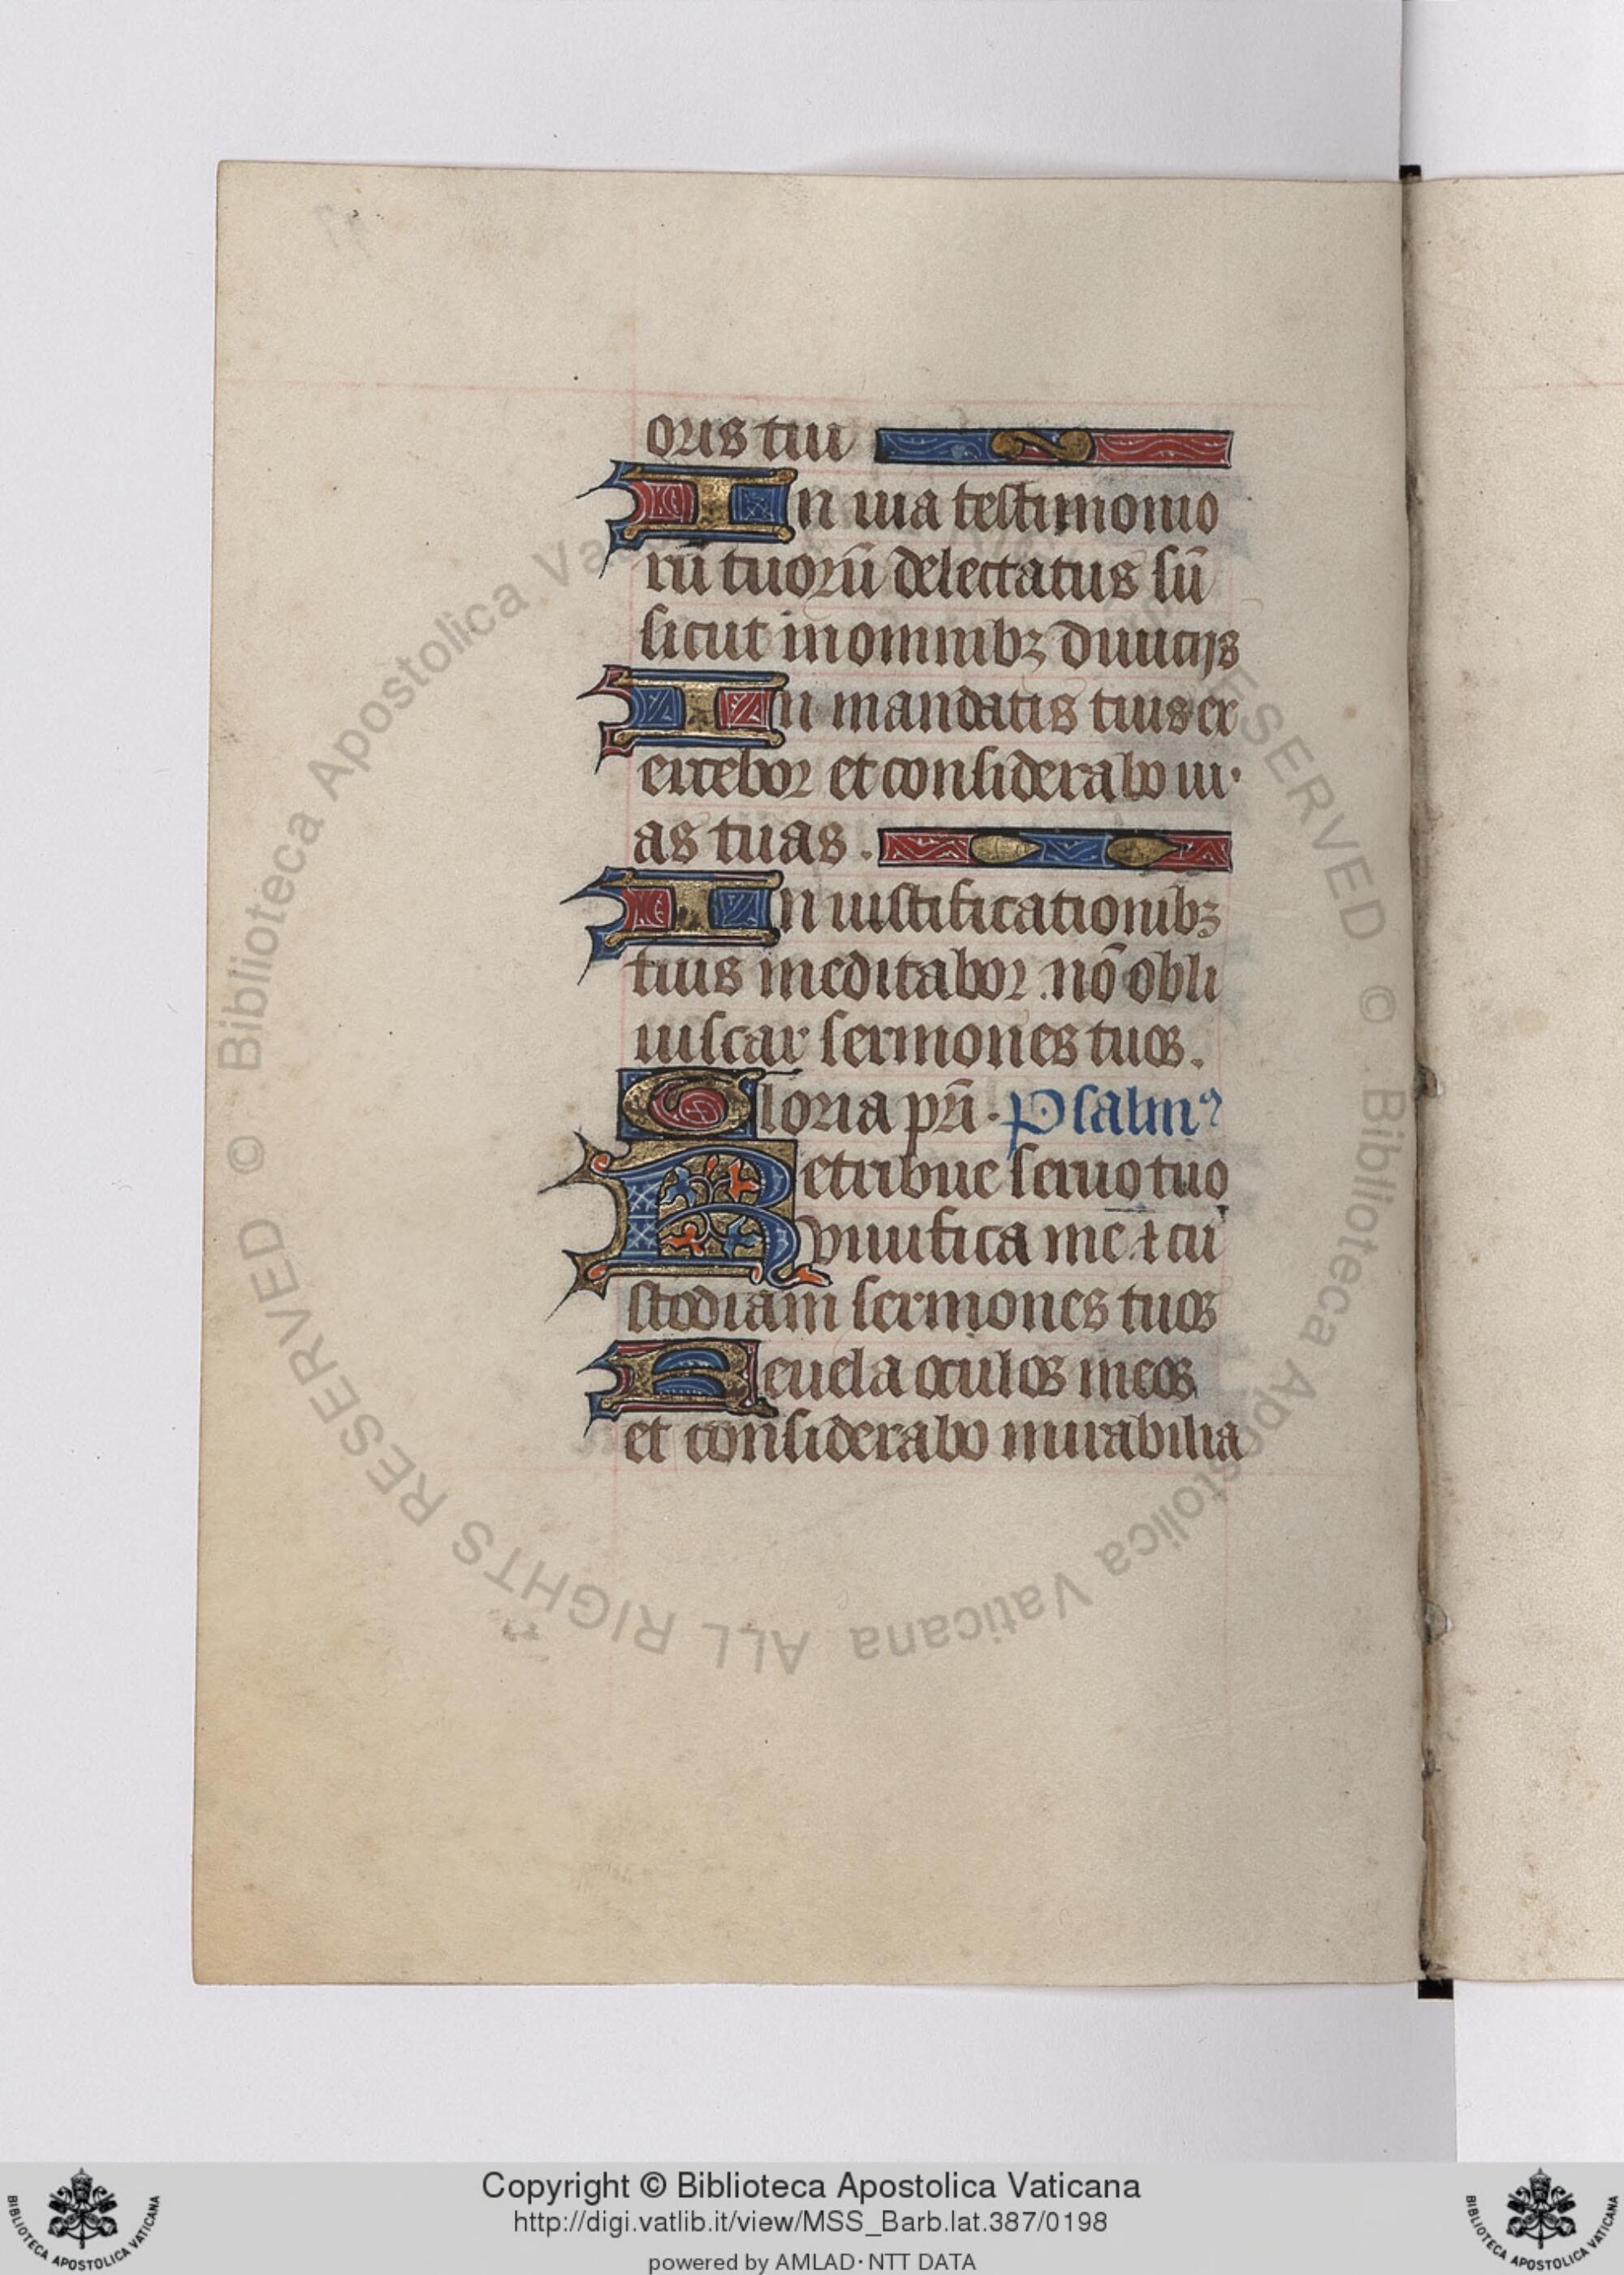 oris tui
In uia testimonio
rū tuorū delectatus sū
sicut in omnibꝫ diuicijs
In mandatis tuis ex
ercebor et considerabo ui·
as tuas .
In iustificationibꝫ
tuis meditabor . nō obli
uiscar sermones tuos .
Gloria pr̄i . Psalmꝰ
Retribue seruo tuo
uiuifica me ⁊ cu
stodiam sermones tuos
Reuela oculos meos
et considerabo mirabilia
© Biblioteca Apostolica Vaticana ALL RIGHTS RESERVED
© Biblioteca Apostolica Vaticana ALL RIGHTS RESERVED
Copyright © Biblioteca Apostolica Vaticana
http://digi.vatlib.it/view/MSS_Barb.lat.387/0198
powered by AMLAD·NTT DATA
BIBLIOTECA APOSTOLICA VATICANA
BIBLIOTECA APOSTOLICA VATICANA